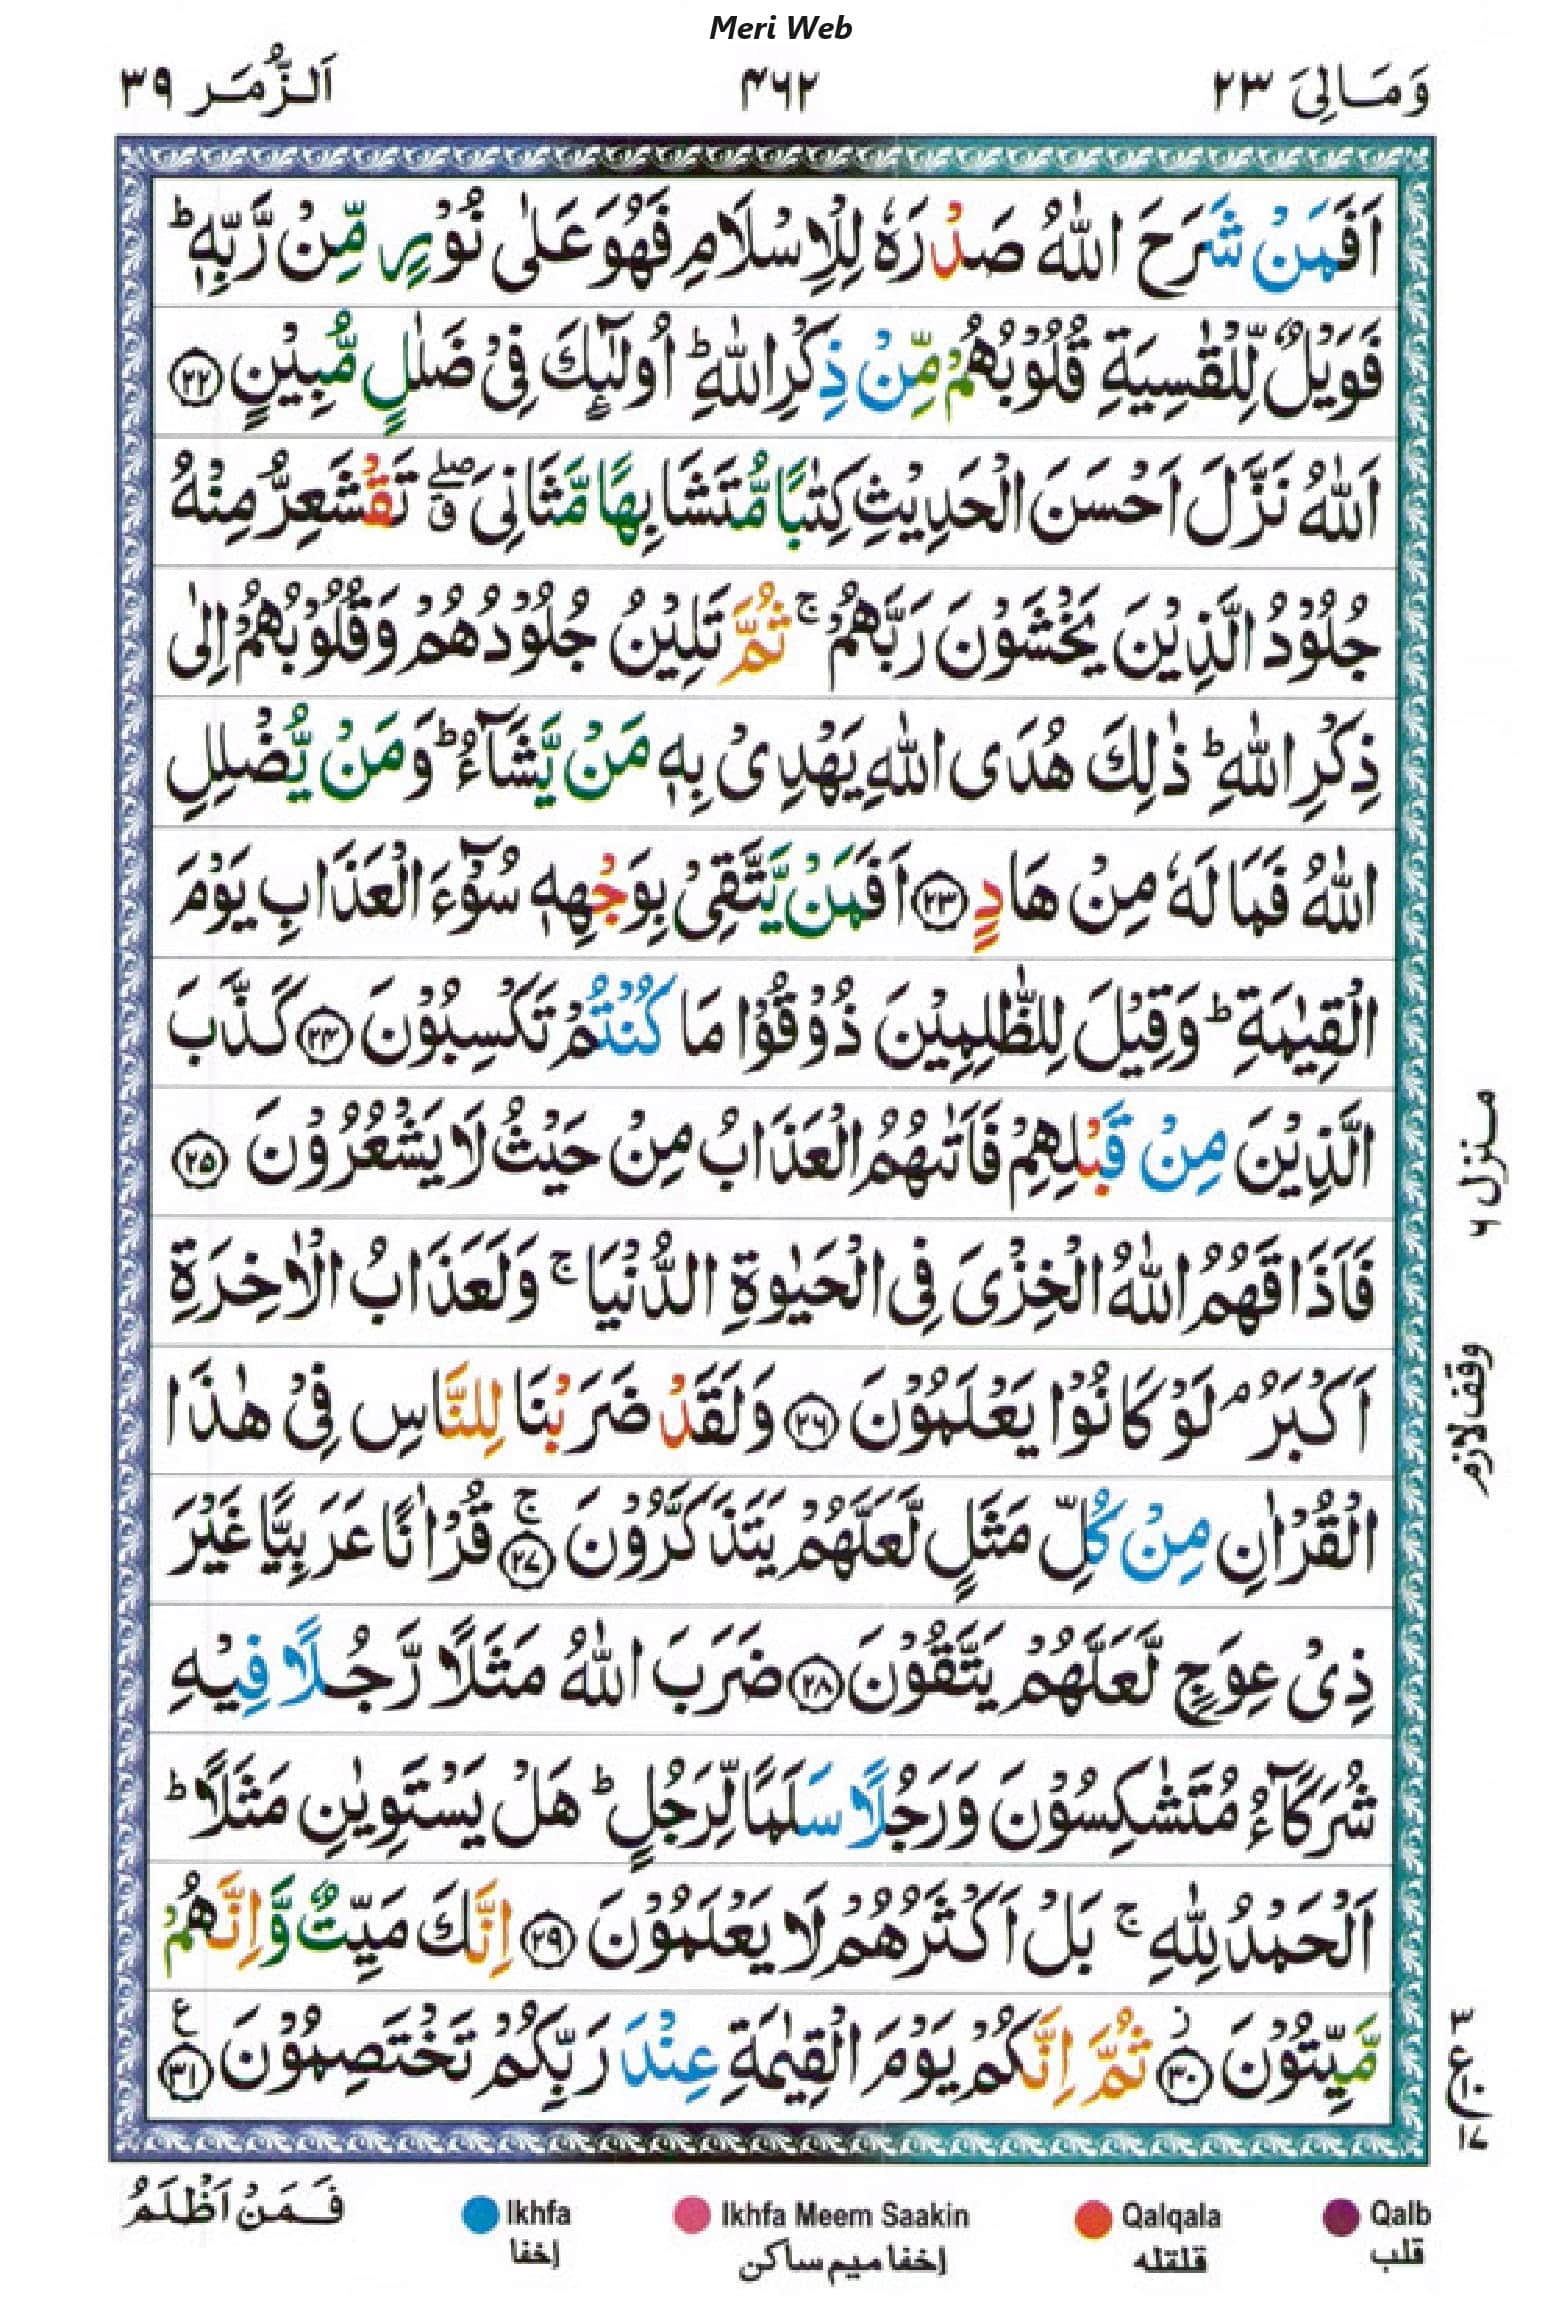 Meri Web
وَمَالِیَ ٢٣
٤٦٢
اَلزُّمَر ٣٩
اَفَمَنْ شَرَحَ اللّٰهُ صَدْرَهٗ لِلْاِسْلَامِ فَهُوَ عَلٰى نُوْرٍ مِّنْ رَّبِّهٖ ؕ
فَوَيْلٌ لِّلْقٰسِيَةِ قُلُوْبُهُمْ مِّنْ ذِكْرِ اللّٰهِ ؕ اُولٰٓئِكَ فِىْ ضَلٰلٍ مُّبِيْنٍ ﴿٢٢﴾
اَللّٰهُ نَزَّلَ اَحْسَنَ الْحَدِيْثِ كِتٰبًا مُّتَشَابِهًا مَّثَانِىَ ۖق تَقْشَعِرُّ مِنْهُ
جُلُوْدُ الَّذِيْنَ يَخْشَوْنَ رَبَّهُمْ ۚ ثُمَّ تَلِيْنُ جُلُوْدُهُمْ وَقُلُوْبُهُمْ اِلٰى
ذِكْرِ اللّٰهِ ؕ ذٰلِكَ هُدَى اللّٰهِ يَهْدِىْ بِهٖ مَنْ يَّشَآءُ ؕ وَمَنْ يُّضْلِلِ
اللّٰهُ فَمَا لَهٗ مِنْ هَادٍ ﴿٢٣﴾ اَفَمَنْ يَّتَّقِىْ بِوَجْهِهٖ سُوْٓءَ الْعَذَابِ يَوْمَ
الْقِيٰمَةِ ؕ وَقِيْلَ لِلظّٰلِمِيْنَ ذُوْقُوْا مَا كُنْتُمْ تَكْسِبُوْنَ ﴿٢٤﴾ كَذَّبَ
الَّذِيْنَ مِنْ قَبْلِهِمْ فَاَتٰٮهُمُ الْعَذَابُ مِنْ حَيْثُ لَا يَشْعُرُوْنَ ﴿٢٥﴾
فَاَذَاقَهُمُ اللّٰهُ الْخِزْىَ فِى الْحَيٰوةِ الدُّنْيَا ۚ وَلَعَذَابُ الْاٰخِرَةِ
اَكْبَرُ ۘ لَوْ كَانُوْا يَعْلَمُوْنَ ﴿٢٦﴾ وَلَقَدْ ضَرَبْنَا لِلنَّاسِ فِىْ هٰذَا
الْقُرْاٰنِ مِنْ كُلِّ مَثَلٍ لَّعَلَّهُمْ يَتَذَكَّرُوْنَ ۚ﴿٢٧﴾ قُرْاٰنًا عَرَبِيًّا غَيْرَ
ذِىْ عِوَجٍ لَّعَلَّهُمْ يَتَّقُوْنَ ﴿٢٨﴾ ضَرَبَ اللّٰهُ مَثَلًا رَّجُلًا فِيْهِ
شُرَكَآءُ مُتَشٰكِسُوْنَ وَرَجُلًا سَلَمًا لِّرَجُلٍ ؕ هَلْ يَسْتَوِيٰنِ مَثَلًا ؕ
اَلْحَمْدُ لِلّٰهِ ۚ بَلْ اَكْثَرُهُمْ لَا يَعْلَمُوْنَ ﴿٢٩﴾ اِنَّكَ مَيِّتٌ وَّاِنَّهُمْ
مَّيِّتُوْنَ ز﴿٣٠﴾ ثُمَّ اِنَّكُمْ يَوْمَ الْقِيٰمَةِ عِنْدَ رَبِّكُمْ تَخْتَصِمُوْنَ ع﴿٣١﴾
منزل ٦
وقف لازم
٣
ع
١٠
١٧
فَمَنْ اَظْلَمُ
Ikhfa
إخفا
Ikhfa Meem Saakin
إخفا ميم ساكن
Qalqala
قلقله
Qalb
قلب